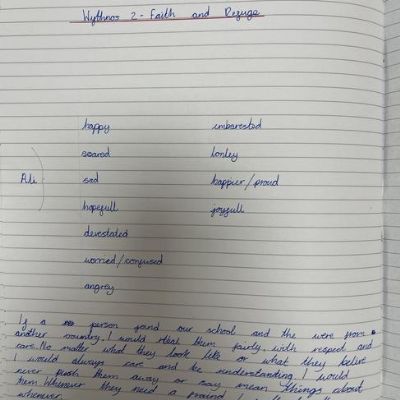 Wythnos 2 - Faith and Refuge
happy embaressed
scared lonley
Ali sad happier/proud
hopefull joyfull
devestated
worried/confused
angrey
If a person joind our school and the were from
another country. I would treat them fairly with respect and
care. No matter what they look like or what they belive
I would always care and be understanding I would
never push them away or say mean things about
them Whenever they need a friend I
whenever